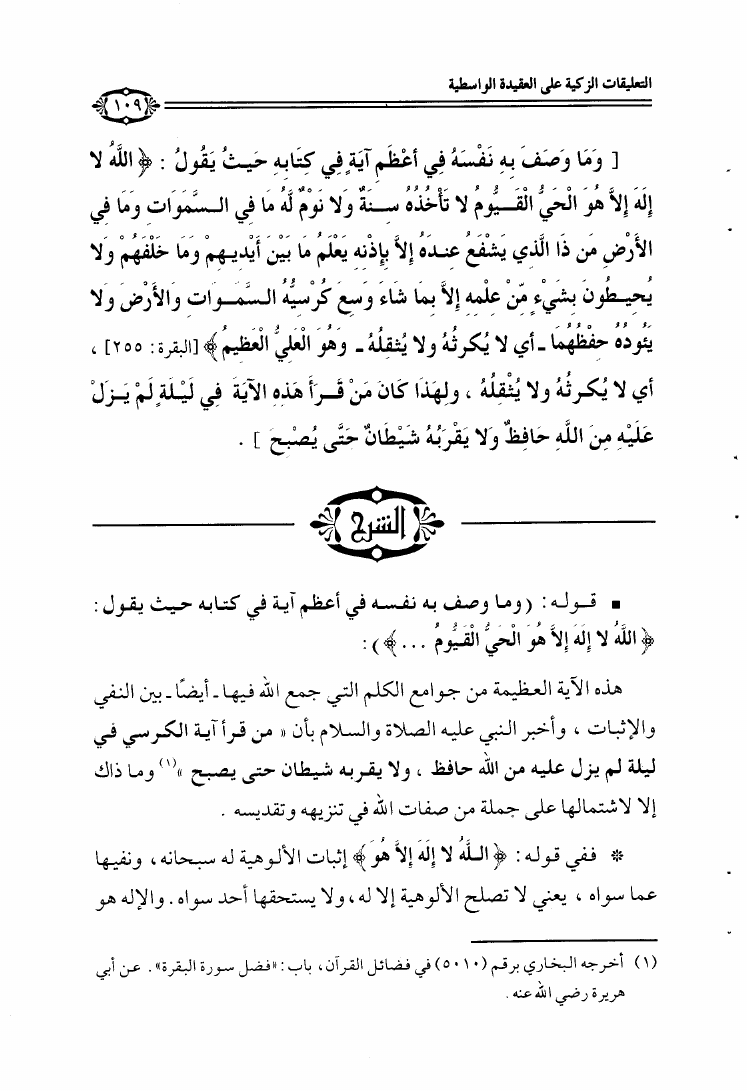 التعليقات الزكية على العقيدة الواسطية
١٠٩
[ وَمَا وَصَفَ بِهِ نَفْسَهُ فِي أَعْظَمِ آيَةٍ فِي كِتَابِهِ حَيثُ يَقُولُ : ﴿ اللَّهُ لا
إِلَهَ إِلاَّ هُوَ الْحَيُّ الْقَــيُّومُ لا تَأْخُذُهُ سِــنَةٌ وَلا نَوْمٌ لَّهُ مَا فِي الـسَّمَوَاتِ وَمَا فِي
الأَرْضِ مَن ذَا الَّذِي يَشْفَعُ عِندَهُ إِلاَّ بِإِذْنِهِ يَعْلَمُ مَا بَيْنَ أَيْدِيـهِمْ وَمَا خَلْفَهُمْ وَلا
يُحِيـطُونَ بِشَيْءٍ مِّنْ عِلْمِهِ إِلاَّ بِمَا شَاءَ وَسِعَ كُرْسِيُّهُ السَّمَـوَاتِ وَالأَرْضَ وَلا
يَئُودُهُ حِفْظُهُمَا ـ أي لا يُكرثُهُ ولا يُثقِلُهُ ـ وَهُوَ الْعَلِيُّ الْعَظِيمُ﴾ [البقرة: ٢٥٥] ،
أي لا يُكرثُهُ ولا يُثْقِلُهُ ، ولِهَذَا كَانَ مَنْ قَـرَأَ هَذِهِ الآيَةَ فِي لَيْلَةٍ لَمْ يَـزَلْ
عَلَيْهِ مِنَ اللَّهِ حَافِظٌ وَلا يَقْرَبُهُ شَيْطَانٌ حَتَّى يُصْبِحَ ] .
الشرح
■ قـولـه: (ومـا وصف به نفسـه في أعظم آية في كتابه حيث يقول:
﴿ اللَّهُ لا إِلَهَ إِلاَّ هُوَ الْحَيُّ الْقَيُّومُ ...﴾):
هذه الآية العظيمة من جوامع الكلم التي جمع الله فيهـا ـ أيضًا ـ بين النفي
والإثبـات ، وأخبر الـنبي عليه الصلاة والسلام بأن « من قرأ آيـة الكرسي في
ليلة لم يزل عليه من الله حافظ ، ولا يقربه شيطان حتى يصبح »(١) ومـا ذاك
إلا لاشتمالها على جملة من صفات الله في تنزيهه وتقديسه .
* ففي قولـه: ﴿ اللَّهُ لا إِلَهَ إِلاَّ هُوَ ﴾ إثبات الألوهية له سبحانه، ونفيها
عما سواه ، يعني لا تصلح الألوهية إلا له، ولا يستحقها أحد سواه. والإله هو
(١) أخرجه البخاري برقم (٥٠١٠) في فضائل القرآن، باب: «فضل سورة البقرة». عن أبي
هريرة رضي الله عنه.